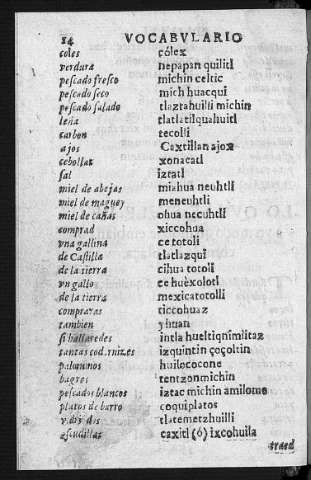 14 VOCABVLARIO
coles cólex
verdura nepapan quilitl
pescado fresco michin celtic
pescado seco mich huacqui
pescado salado tlaztahuilli michin
leña tlatlatilquahuitl
carbon tecolli
ajos Caxtillan ajox
cebollas xonacatl
sal iztatl
miel de abejas miahua neuhtli
miel de maguey meneuhtli
miel de cañas ohua necuhtli
comprad xiccohua
vna gallina ce totoli
de Castilla tlatlazqui
de la tierra cihua totoli
vn gallo ce huèxolotl
de la tierra mexicatotolli
compraras ticcohuaz
tambien yhuan
si hallaredes intla hueltiqnîmlitaz
tantas codornizes izquintin çoçoltin
palominos huilocococone
bagres tentzonmichin
pescados blancos iztac michin amilotue
platos de barro coquiplatos
tlatemetzhuilli
escudillas caxitl (ó) ixcohuila